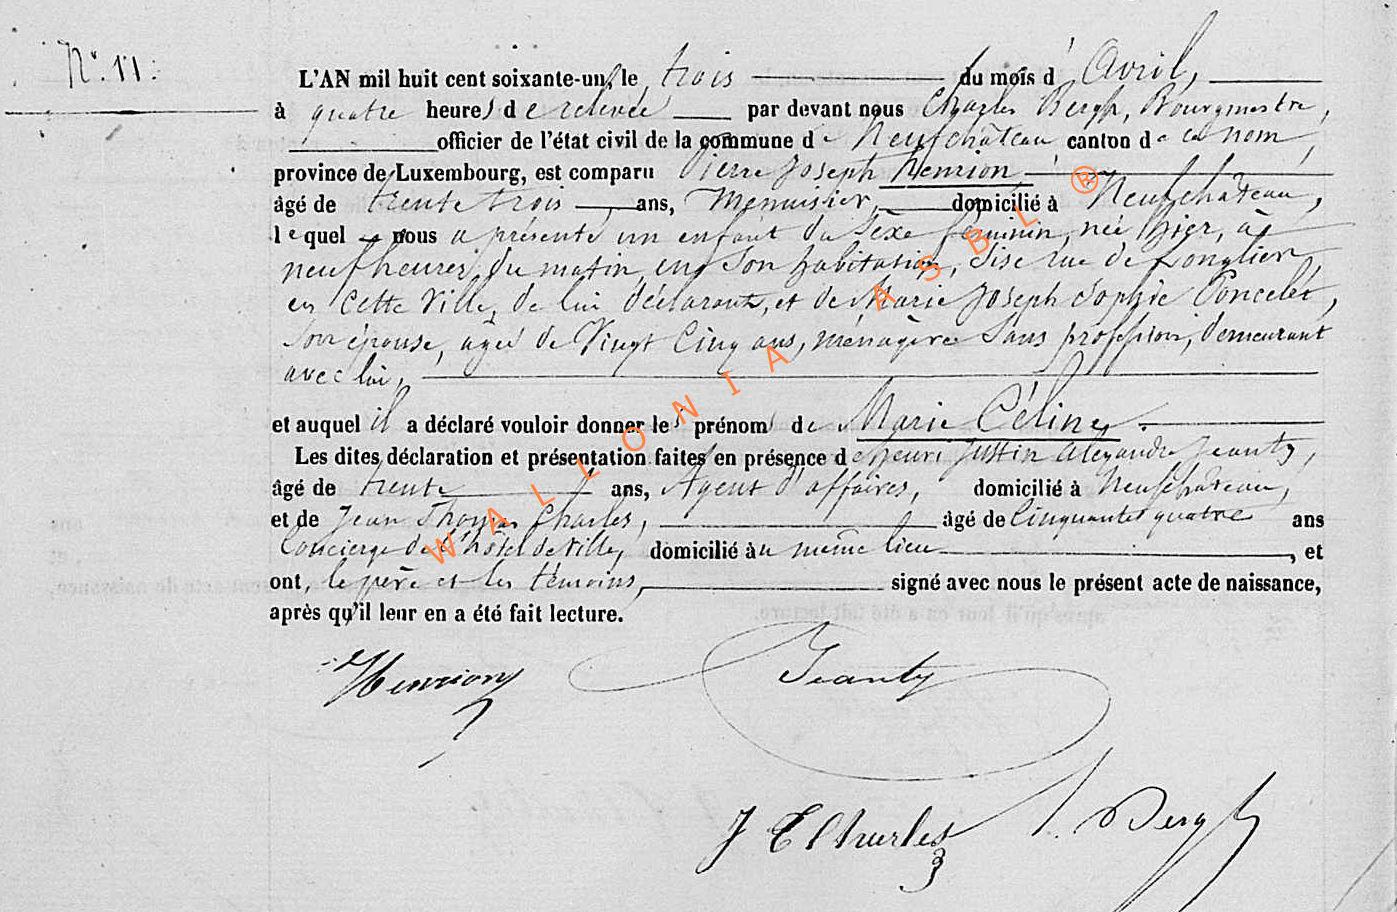 N° 11.
L'AN mil huit cent soixante-un, le trois du mois d'Avril,
à quatre heures de relevée par devant nous Charles Bergh, Bourgmestre,
officier de l'état civil de la commune de Neufchâteau canton de ce nom,
province de Luxembourg, est comparu Pierre Joseph Henrion
âgé de trente trois ans, Menuisier, domicilié à Neufchâteau,
lequel nous a présenté un enfant du sèxe féminin, née hier, à
neuf heures du matin, en son habitation, sise rue de Longlier,
en cette Ville, de lui déclarant, et de Marie Joseph Sophie Poncelet,
son épouse, agée de Vingt Cinq ans, ménagère sans profession, demeurant
avec lui,
et auquel il a déclaré vouloir donner les prénoms de Marie Céline.
Les dites déclaration et présentation faites en présence de henri Justin Alexandre Jeanty,
âgé de trente ans, Agent d'affaires, domicilié à Neufchâteau,
et de Jean Thomas Charles, âgé de Cinquante quatre ans
Concierge de l'hôtel de Ville, domicilié au même lieu, et
ont, le père et les témoins, signé avec nous le présent acte de naissance,
après qu'il leur en a été fait lecture.
Henrion
Jeanty
J T Charles
Bergh
WALLONIA ASBL ®